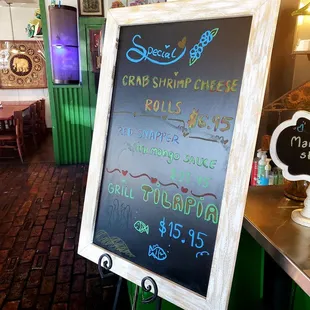 Special
CRAB SHRIMP CHEESE
ROLLS
RED SNAPPER
mango SAUCE
GRILL TILAPIA
$15.95
Ma